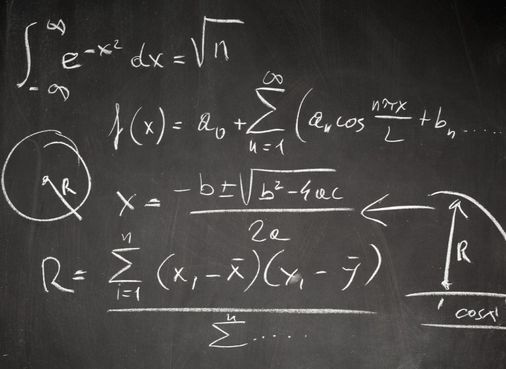 ∫_{-∞}^{∞} e^{-x²} dx = √n
f(x) = a₀ + ∑_{n=1}^{∞} (aₙ cos nπx/L + bₙ .....
R
x = (-b ± √(b² - 4ac)) / 2a
R
R = ∑_{i=1}^{n} (x₁ - x̄)(y₁ - ȳ) / ∑^{n} .....
cosx